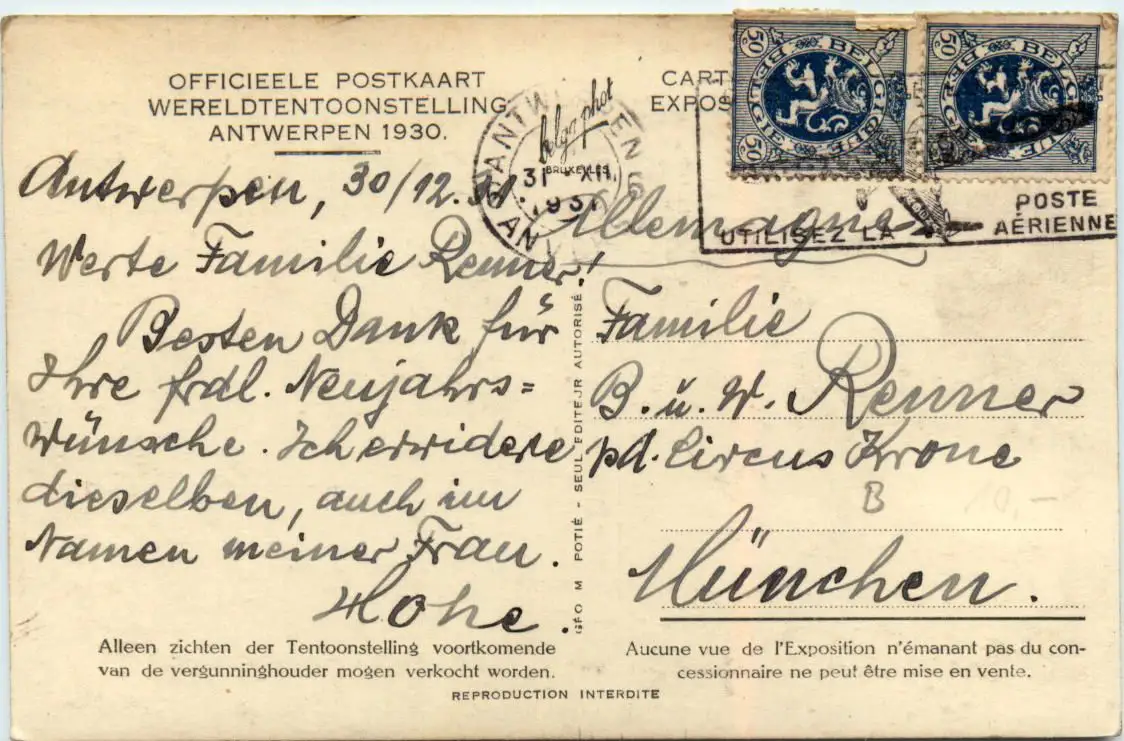 OFFICIEELE POSTKAART
WERELDTENTOONSTELLING
ANTWERPEN 1930.
CART
EXPOS
belga phot
BRUXELLES
ANTWERPEN
31 XII
1931
50 BELGIE BELGIQUE 50
50 BELGIE BELGIQUE 50
UTILISEZ LA
POSTE
AÉRIENNE
Antwerpen, 30/12.31
Werte Familie Renner!
Besten Dank für
Ihre frdl. Neujahrs=
wünsche. Ich erwidere
dieselben, auch im
Namen meiner Frau.
Hohe.
GÉO M POTIÉ - SEUL EDITEUR AUTORISÉ
Allemagne
Familie
B. u. W. Renner
pd. Circus Krone
B 10,-
München.
Alleen zichten der Tentoonstelling voortkomende
van de vergunninghouder mogen verkocht worden.
Aucune vue de l'Exposition n'émanant pas du con-
cessionnaire ne peut être mise en vente.
REPRODUCTION INTERDITE